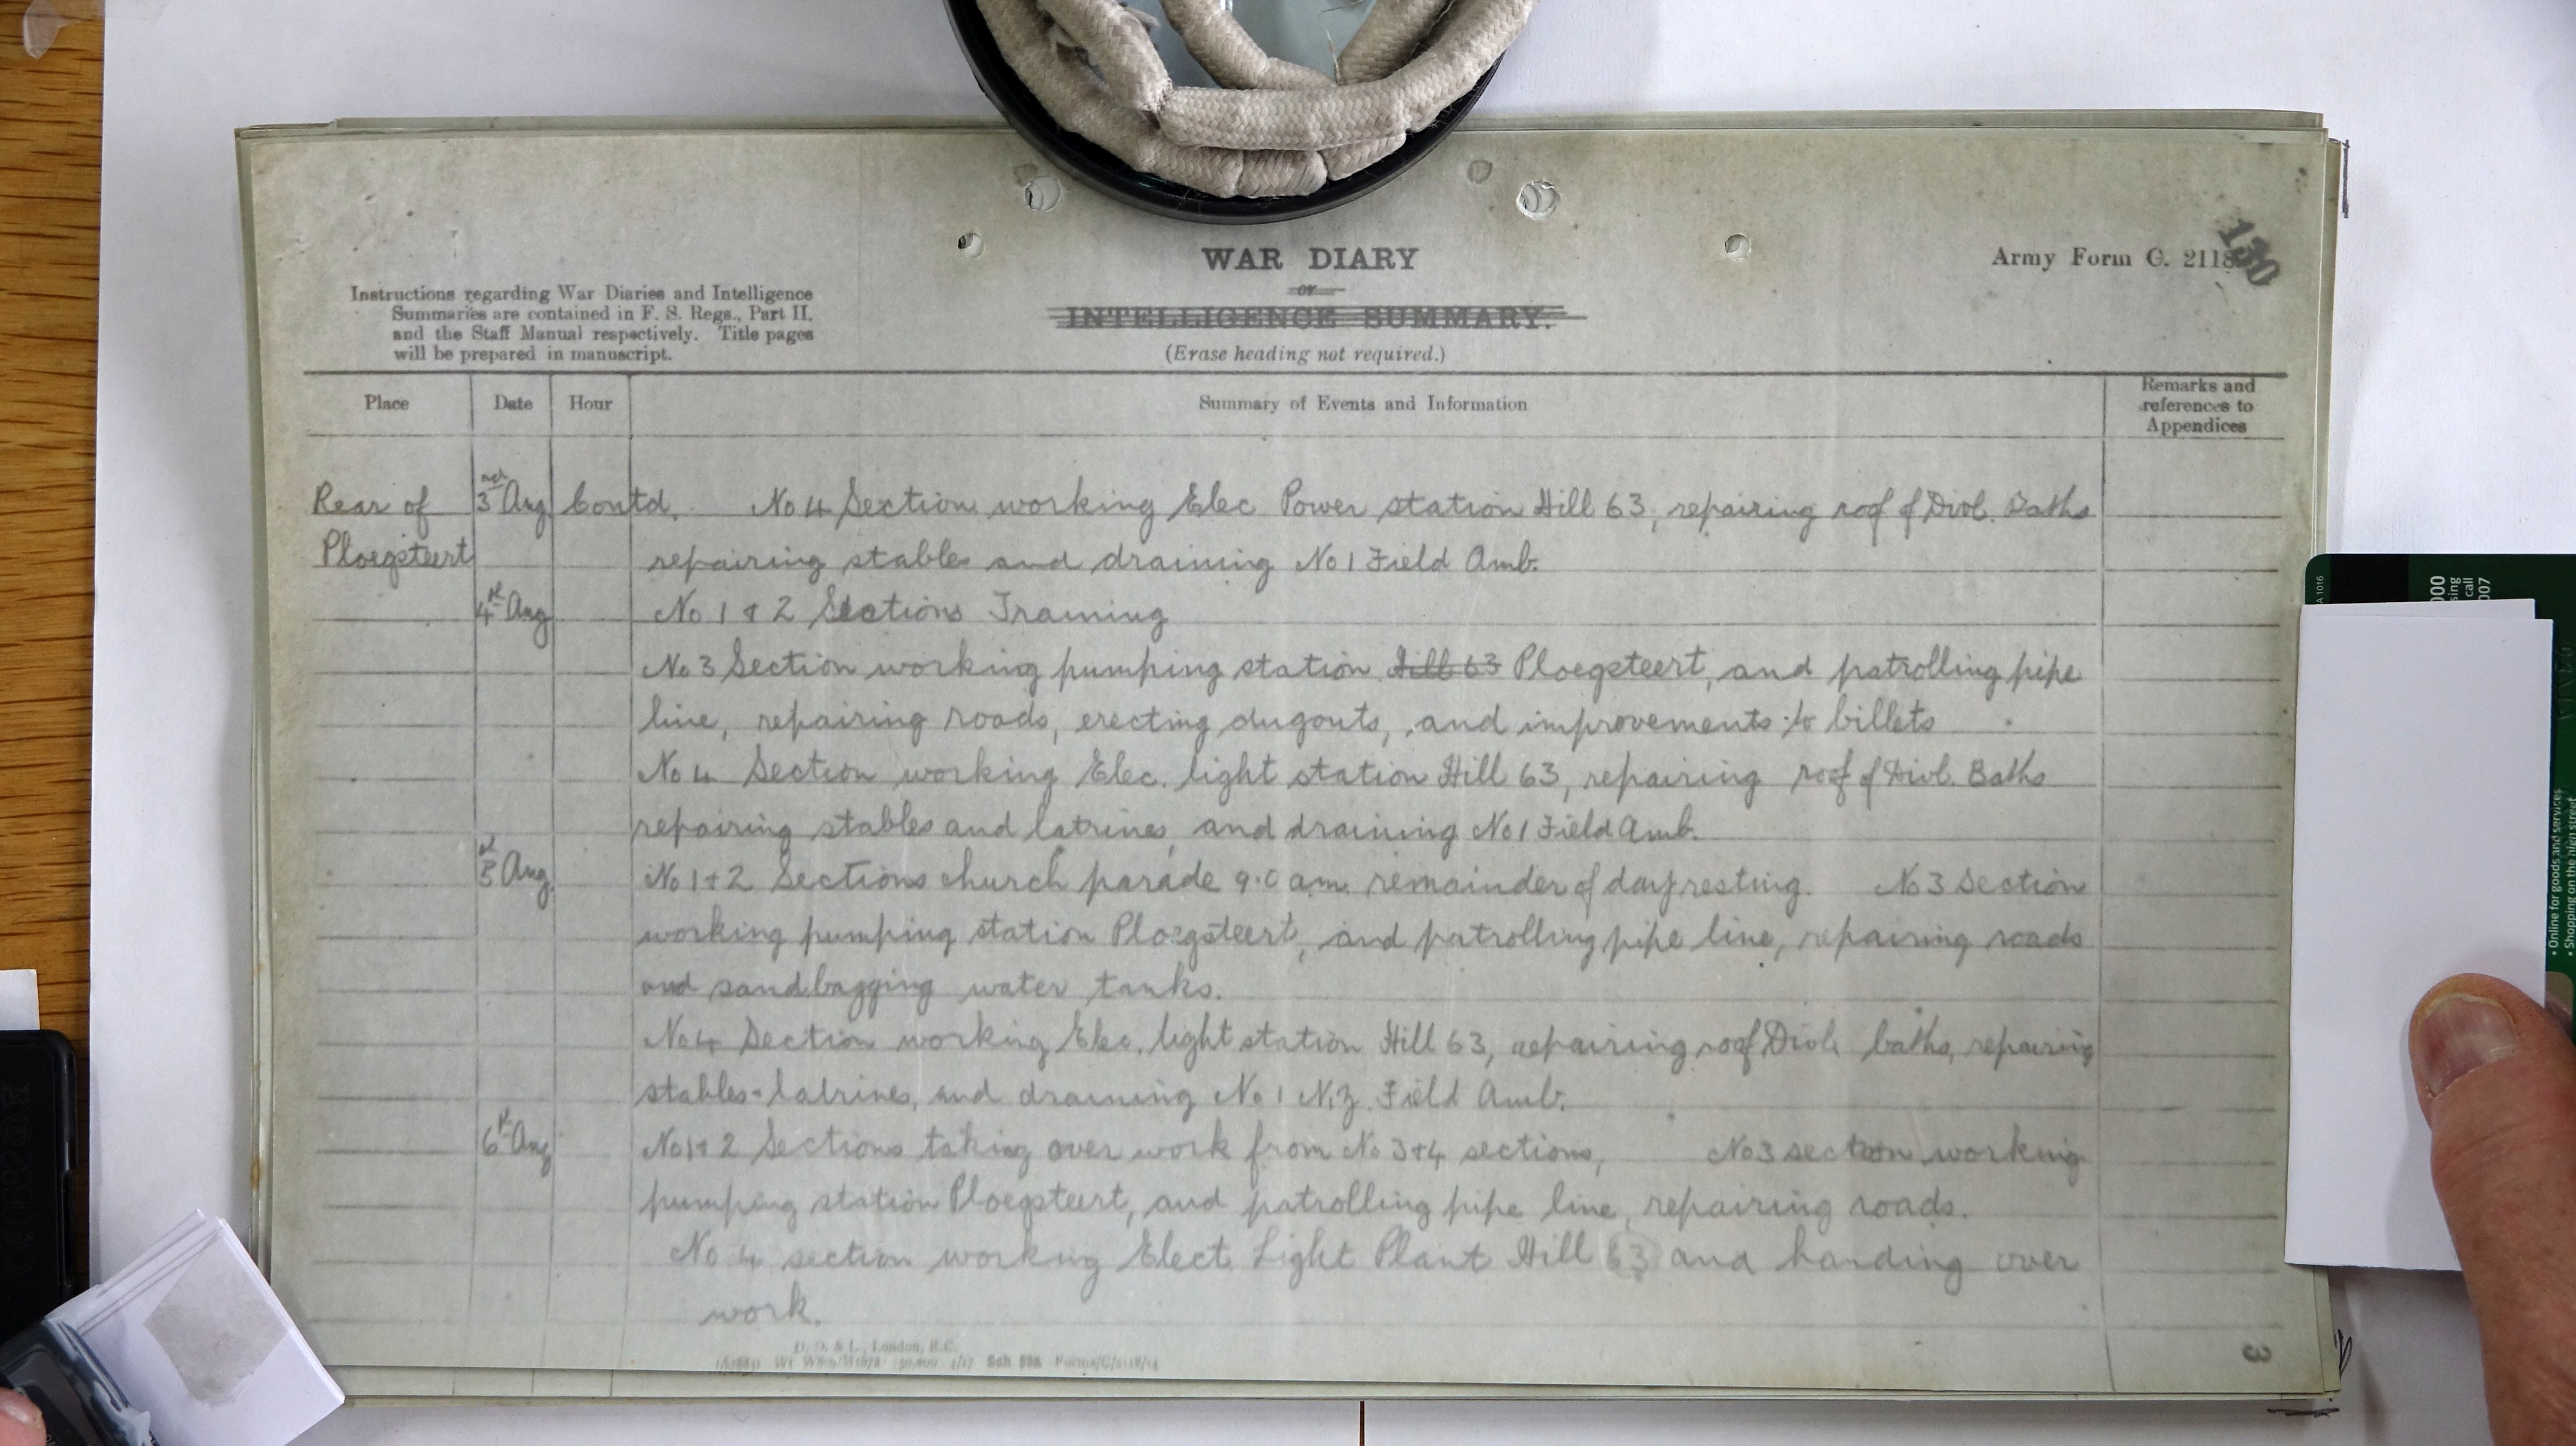 130
WAR DIARY
Army Form C. 2118
or
INTELLIGENCE SUMMARY.
(Erase heading not required.)
Instructions regarding War Diaries and Intelligence
Summaries are contained in F. S. Regs., Part II.
and the Staff Manual respectively. Title pages
will be prepared in manuscript.
Place Date Hour Summary of Events and Information Remarks and
references to
Appendices
Rear of 3rd Aug Contd. No 4 Section working Elec Power station Hill 63, repairing roof of Divl. Baths
Ploegsteert repairing stables and draining No 1 Field Amb.
4th Aug No 1 & 2 Sections Training
No 3 Section working pumping station Hill 63 Ploegsteert, and patrolling pipe
line, repairing roads, erecting dugouts, and improvements to billets
No 4 Section working Elec. light station Hill 63, repairing roof of Divl. Baths
repairing stables and latrines, and draining No 1 Field Amb.
5th Aug. No 1 + 2 Sections church parade 9.0 am. remainder of day resting. No 3 Section
working pumping station Ploegsteert, and patrolling pipe line, repairing roads
and sandbagging water tanks.
No 4 Section working Elec. light station Hill 63, repairing roof Divl. baths, repairing
stables-latrines, and draining No 1 N.Z. Field Amb.
6th Aug No 1 + 2 Sections taking over work from No 3+4 sections, No 3 section working
pumping station Ploegsteert, and patrolling pipe line, repairing roads.
No 4 section working Elect. Light Plant Hill 63 and handing over
work.
D. D. & L., London, E.C.
Forms/C/2118/14
3
000
sing
call
007
A 1016
• Online for goods and services
• Shopping on the high street